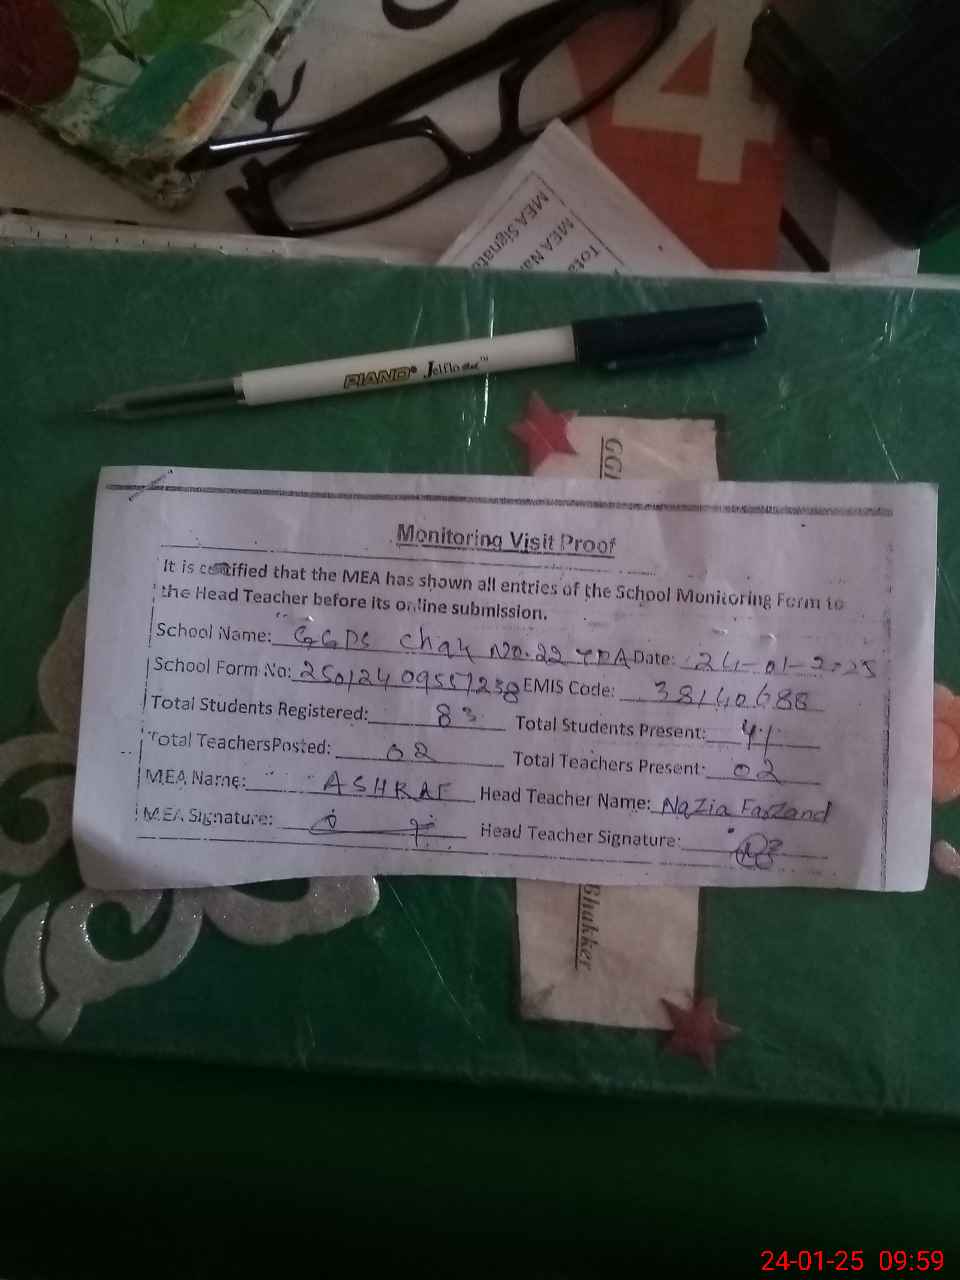 4
MEA Signatu
MEA Na
Tota
PIANO® Jelflo Gel™
GGI
Monitoring Visit Proof
It is certified that the MEA has shown all entries of the School Monitoring Form to
the Head Teacher before its online submission.
School Name: GGPS Chak No. 22 TDA Date: 24-01-2025
School Form No: EMIS Code: 38140688
Total Students Registered: 83 Total Students Present: 41
Total Teachers Posted: 02 Total Teachers Present: 02
MEA Name: ASHRAF Head Teacher Name: Nazia Farzand
MEA Signature: Head Teacher Signature:
Bhakker
24-01-25 09:59